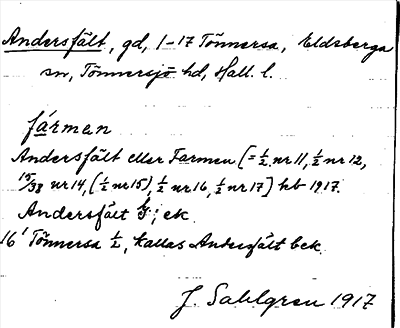 Andersfält, gd, 1-17 Tönnersa, Eldsberga
sn, Tönnersjö hd, Hall. l.
farmen
Andersfält eller Farmen [= ½ nr 11, ½ nr 12,
15/38 nr 14, (½ nr 15), ½ nr 16, ½ nr 17] hb 1917.
Andersfält ; ek.
16' Tönnersa ½, kallas Andersfält bek.
J. Sahlgren 1917